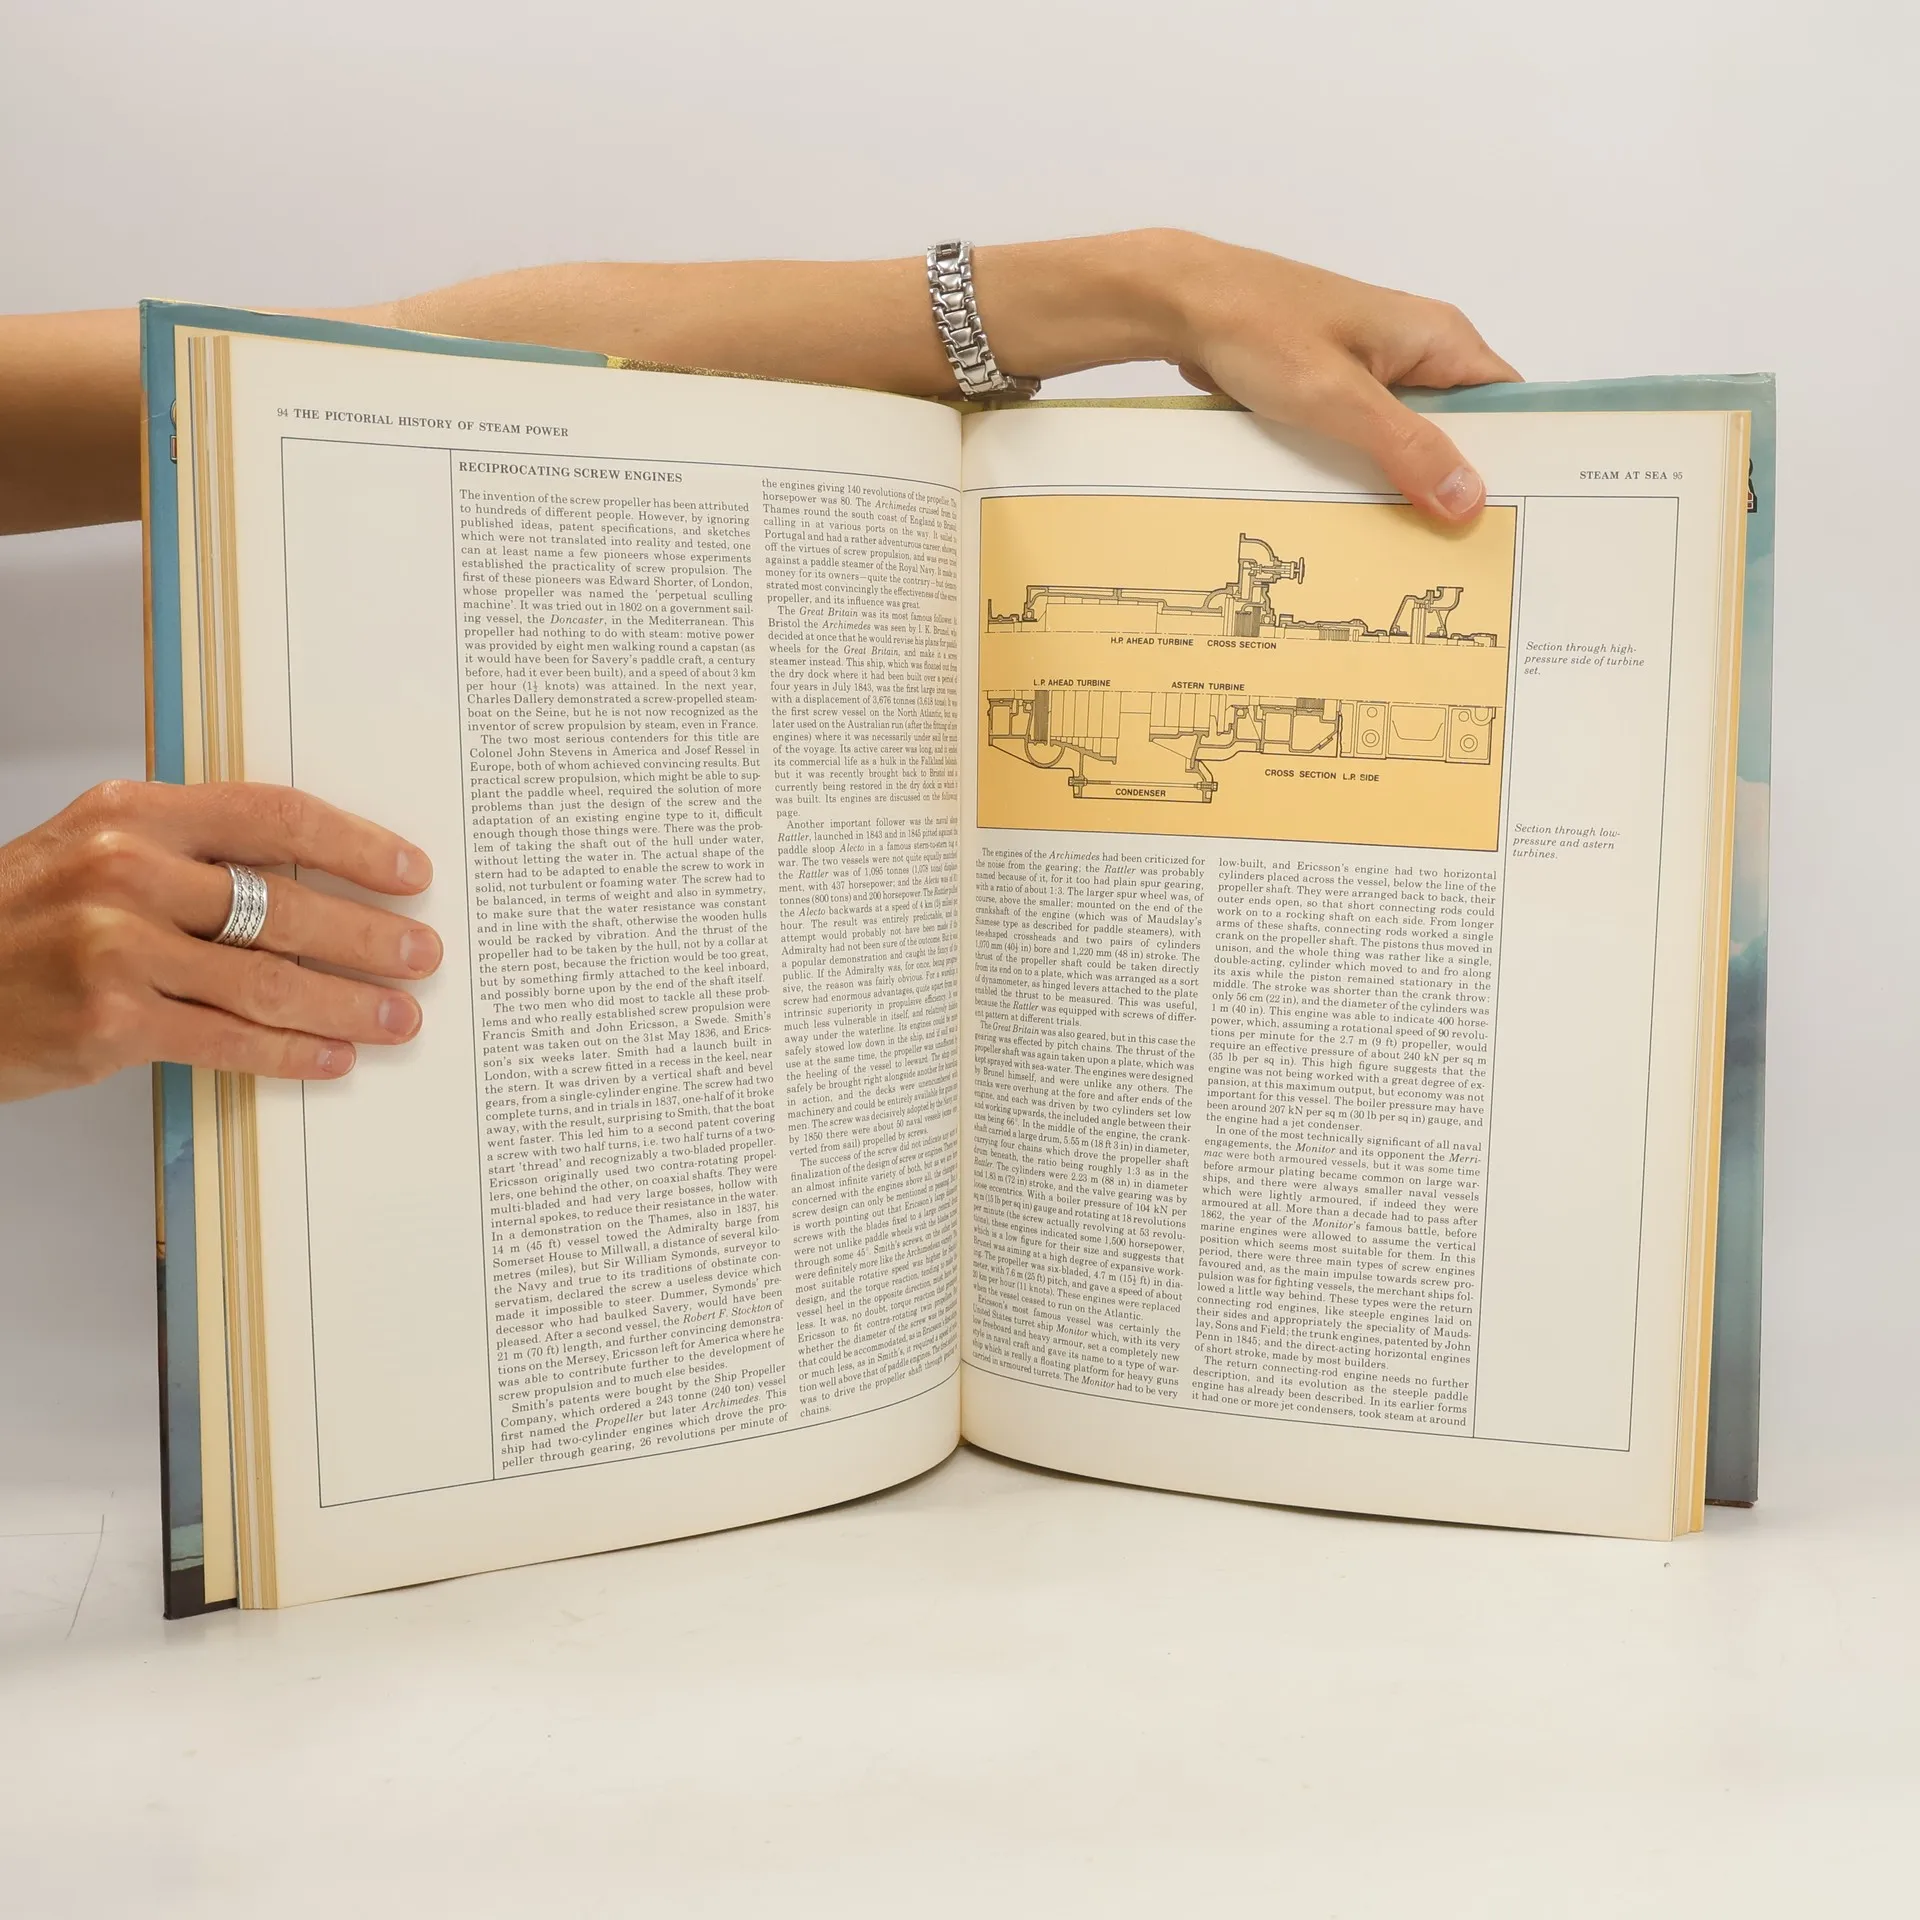 94 THE PICTORIAL HISTORY OF STEAM POWER
RECIPROCATING SCREW ENGINES
The invention of the screw propeller has been attributed
to hundreds of different people. However, by ignoring
published ideas, patent specifications, and sketches
which were not translated into reality and tested, one
can at least name a few pioneers whose experiments
established the practicality of screw propulsion. The
first of these pioneers was Edward Shorter, of London,
whose propeller was named the 'perpetual sculling
machine'. It was tried out in 1802 on a government sail-
ing vessel, the Doncaster, in the Mediterranean. This
propeller had nothing to do with steam: motive power
was provided by eight men walking round a capstan (as
it would have been for Savery's paddle craft, a century
before, had it ever been built), and a speed of about 3 km
per hour (1½ knots) was attained. In the next year,
Charles Dallery demonstrated a screw-propelled steam-
boat on the Seine, but he is not now recognized as the
inventor of screw propulsion by steam, even in France.
The two most serious contenders for this title are
Colonel John Stevens in America and Josef Ressel in
Europe, both of whom achieved convincing results. But
practical screw propulsion, which might be able to sup-
plant the paddle wheel, required the solution of more
problems than just the design of the screw and the
adaptation of an existing engine type to it, difficult
enough though those things were. There was the prob-
lem of taking the shaft out of the hull under water,
without letting the water in. The actual shape of the
stern had to be adapted to enable the screw to work in
solid, not turbulent or foaming water. The screw had to
be balanced, in terms of weight and also in symmetry,
to make sure that the water resistance was constant
and in line with the shaft, otherwise the wooden hulls
would be racked by vibration. And the thrust of the
propeller had to be taken by the hull, not by a collar at
the stern post, because the friction would be too great,
but by something firmly attached to the keel inboard,
and possibly borne upon by the end of the shaft itself.
The two men who did most to tackle all these prob-
lems and who really established screw propulsion were
Francis Smith and John Ericsson, a Swede. Smith's
patent was taken out on the 31st May 1836, and Erics-
son's six weeks later. Smith had a launch built in
London, with a screw fitted in a recess in the keel, near
the stern. It was driven by a vertical shaft and bevel
gears, from a single-cylinder engine. The screw had two
complete turns, and in trials in 1837, one-half of it broke
away, with the result, surprising to Smith, that the boat
went faster. This led him to a second patent covering
a screw with two half turns, i.e. two half turns of a two-
start 'thread' and recognizably a two-bladed propeller.
Ericsson originally used two contra-rotating propel-
lers, one behind the other, on coaxial shafts. They were
multi-bladed and had very large bosses, hollow with
internal spokes, to reduce their resistance in the water.
In a demonstration on the Thames, also in 1837, his
14 m (45 ft) vessel towed the Admiralty barge from
Somerset House to Millwall, a distance of several kilo-
metres (miles), but Sir William Symonds, surveyor to
the Navy and true to its traditions of obstinate con-
servatism, declared the screw a useless device which
made it impossible to steer. Dummer, Symonds' pre-
decessor who had baulked Savery, would have been
pleased. After a second vessel, the Robert F. Stockton of
21 m (70 ft) length, and further convincing demonstra-
tions on the Mersey, Ericsson left for America where he
was able to contribute further to the development of
screw propulsion and to much else besides.
Smith's patents were bought by the Ship Propeller
Company, which ordered a 243 tonne (240 ton) vessel
first named the Propeller but later Archimedes. This
ship had two-cylinder engines which drove the pro-
peller through gearing, 26 revolutions per minute of
the engines giving 140 revolutions of the propeller. The
horsepower was 80. The Archimedes cruised from the
Thames round the south coast of England to Bristol
calling in at various ports on the way. It sailed to
Portugal and had a rather adventurous career, showing
off the virtues of screw propulsion, and was even tried
against a paddle steamer of the Royal Navy. It made no
money for its owners—quite the contrary—but demon-
strated most convincingly the effectiveness of the screw
propeller, and its influence was great.
The Great Britain was its most famous follower. At
Bristol the Archimedes was seen by I. K. Brunel, who
decided at once that he would revise his plans for paddle
wheels for the Great Britain, and make it a screw
steamer instead. This ship, which was floated out from
the dry dock where it had been built over a period of
four years in July 1843, was the first large iron vessel,
with a displacement of 3,676 tonnes (3,618 tons). It was
the first screw vessel on the North Atlantic, but was
later used on the Australian run (after the fitting of new
engines) where it was necessarily under sail for much
of the voyage. Its active career was long, and it ended
its commercial life as a hulk in the Falkland Islands,
but it was recently brought back to Bristol and is
currently being restored in the dry dock in which it
was built. Its engines are discussed on the following
page.
Another important follower was the naval sloop
Rattler, launched in 1843 and in 1845 pitted against the
paddle sloop Alecto in a famous stern-to-stern tug of
war. The two vessels were not quite equally matched:
the Rattler was of 1,095 tonnes (1,078 tons) displace-
ment, with 437 horsepower; and the Alecto was of 813
tonnes (800 tons) and 200 horsepower. The Rattler pulled
the Alecto backwards at a speed of 4 km per
hour. The result was entirely predictable, and the
attempt would probably not have been made if the
Admiralty had not been sure of the outcome. But it was
a popular demonstration and caught the fancy of the
public. If the Admiralty was, for once, being progres-
sive, the reason was fairly obvious. For a warship the
screw had enormous advantages, quite apart from its
intrinsic superiority in propulsive efficiency. It was
much less vulnerable in itself, and relatively hidden
away under the waterline. Its engines could be more
safely stowed low down in the ship, and if sail was in
use at the same time, the propeller was unaffected by
the heeling of the vessel to leeward. The ship could
safely be brought right alongside another for boarding
in action, and the decks were unencumbered with
machinery and could be entirely available for guns and
men. The screw was decisively adopted by the Navy, and
by 1850 there were about 50 naval vessels (some con-
verted from sail) propelled by screws.
The success of the screw did not indicate any
finalization of the design of screw or engines. There was
an almost infinite variety of both, but as we are
concerned with the engines above all, the changes in
screw design can only be mentioned in passing. But it
is worth pointing out that Ericsson's large diameter
screws with the blades fixed to a large centre
were not unlike paddle wheels with the blades turned
through some 45°. Smith's screws, on the other hand,
were definitely more like the Archimedean variety. The
most suitable rotative speed was higher for Smith's
design, and the torque reaction, tending to make the
vessel heel in the opposite direction, must have been
less. It was, no doubt, torque reaction that prompted
Ericsson to fit contra-rotating twin propellers. But
whether the diameter of the screw was the maximum
that could be accommodated, as in Ericsson's
or much less, as in Smith's, it required a speed of rota-
tion well above that of paddle engines. The first solution
was to drive the propeller shaft through gearing or
chains.
STEAM AT SEA 95
H.P. AHEAD TURBINE CROSS SECTION
L.P. AHEAD TURBINE ASTERN TURBINE
CROSS SECTION L.P. SIDE
CONDENSER
Section through high-
pressure side of turbine
set.
Section through low-
pressure and astern
turbines.
The engines of the Archimedes had been criticized for
the noise from the gearing; the Rattler was probably
named because of it, for it too had plain spur gearing,
with a ratio of about 1:3. The larger spur wheel was, of
course, above the smaller; mounted on the end of the
crankshaft of the engine (which was of Maudslay's
Siamese type as described for paddle steamers), with
tee-shaped crossheads and two pairs of cylinders
1,070 mm (40¼ in) bore and 1,220 mm (48 in) stroke. The
thrust of the propeller could be taken directly
from its end on to a plate, which was arranged as a sort
of dynamometer, as hinged levers attached to the plate
enabled the thrust to be measured. This was useful,
because the Rattler was equipped with screws of differ-
ent pattern at different trials.
The Great Britain was also geared, but in this case the
gearing was effected by pitch chains. The thrust of the
propeller shaft was again taken upon a plate, which was
kept sprayed with sea-water. The engines were designed
by Brunel himself, and were unlike any others. The
cranks were overhung at the fore and after ends of the
engine, and each was driven by two cylinders set low
and working upwards, the included angle between their
axes being 66°. In the middle of the engine, the crank-
shaft carried a large drum, 5.55 m (18 ft 3 in) in diameter,
carrying four chains which drove the propeller shaft
drum beneath, the ratio being roughly 1:3 as in the
Rattler. The cylinders were 2.23 m (88 in) in diameter
and 1.83 m (72 in) stroke, and the valve gearing was by
loose eccentrics. With a boiler pressure of 104 kN per
sq m (15 lb per sq in) gauge and rotating at 18 revolutions
per minute (the screw actually revolving at 53 revolu-
tions), these engines indicated some 1,500 horsepower,
which is a low figure for their size and suggests that
Brunel was aiming at a high degree of expansive work-
ing. The propeller was six-bladed, 4.7 m (15½ ft) in dia-
meter, with 7.6 m (25 ft) pitch, and gave a speed of about
20 km per hour (11 knots). These engines were replaced
when the vessel ceased to run on the Atlantic.
Ericsson's most famous vessel was certainly the
United States turret ship Monitor which, with its very
low freeboard and heavy armour, set a completely new
style in naval craft and gave its name to a type of war-
ship which is really a floating platform for heavy guns
carried in armoured turrets. The Monitor had to be very
low-built, and Ericsson's engine had two horizontal
cylinders placed across the vessel, below the line of the
propeller shaft. They were arranged back to back, their
outer ends open, so that short connecting rods could
work on to a rocking shaft on each side. From longer
arms of these shafts, connecting rods worked a single
crank on the propeller shaft. The pistons thus moved in
unison, and the whole thing was rather like a single,
double-acting, cylinder which moved to and fro along
its axis while the piston remained stationary in the
middle. The stroke was shorter than the crank throw:
only 56 cm (22 in), and the diameter of the cylinders was
1 m (40 in). This engine was able to indicate 400 horse-
power, which, assuming a rotational speed of 90 revolu-
tions per minute for the 2.7 m (9 ft) propeller, would
require an effective pressure of about 240 kN per sq m
(35 lb per sq in). This high figure suggests that the
engine was not being worked with a great degree of ex-
pansion, at this maximum output, but economy was not
important for this vessel. The boiler pressure may have
been around 207 kN per sq m (30 lb per sq in) gauge, and
the engine had a jet condenser.
In one of the most technically significant of all naval
engagements, the Monitor and its opponent the Merri-
mac were both armoured vessels, but it was some time
before armour plating became common on large war-
ships, and there were always smaller naval vessels
which were lightly armoured, if indeed they were
armoured at all. More than a decade had to pass after
1862, the year of the Monitor's famous battle, before
marine engines were allowed to assume the vertical
position which seems most suitable for them. In this
period, there were three main types of screw engines
favoured and, as the main impulse towards screw pro-
pulsion was for fighting vessels, the merchant ships fol-
lowed a little way behind. These types were the return
connecting rod engines, like steeple engines laid on
their sides and appropriately the speciality of Mauds-
lay, Sons and Field; the trunk engines, patented by John
Penn in 1845; and the direct-acting horizontal engines
of short stroke, made by most builders.
The return connecting-rod engine needs no further
description, and its evolution as the steeple paddle
engine has already been described. In its earlier forms
it had one or more jet condensers, took steam at around